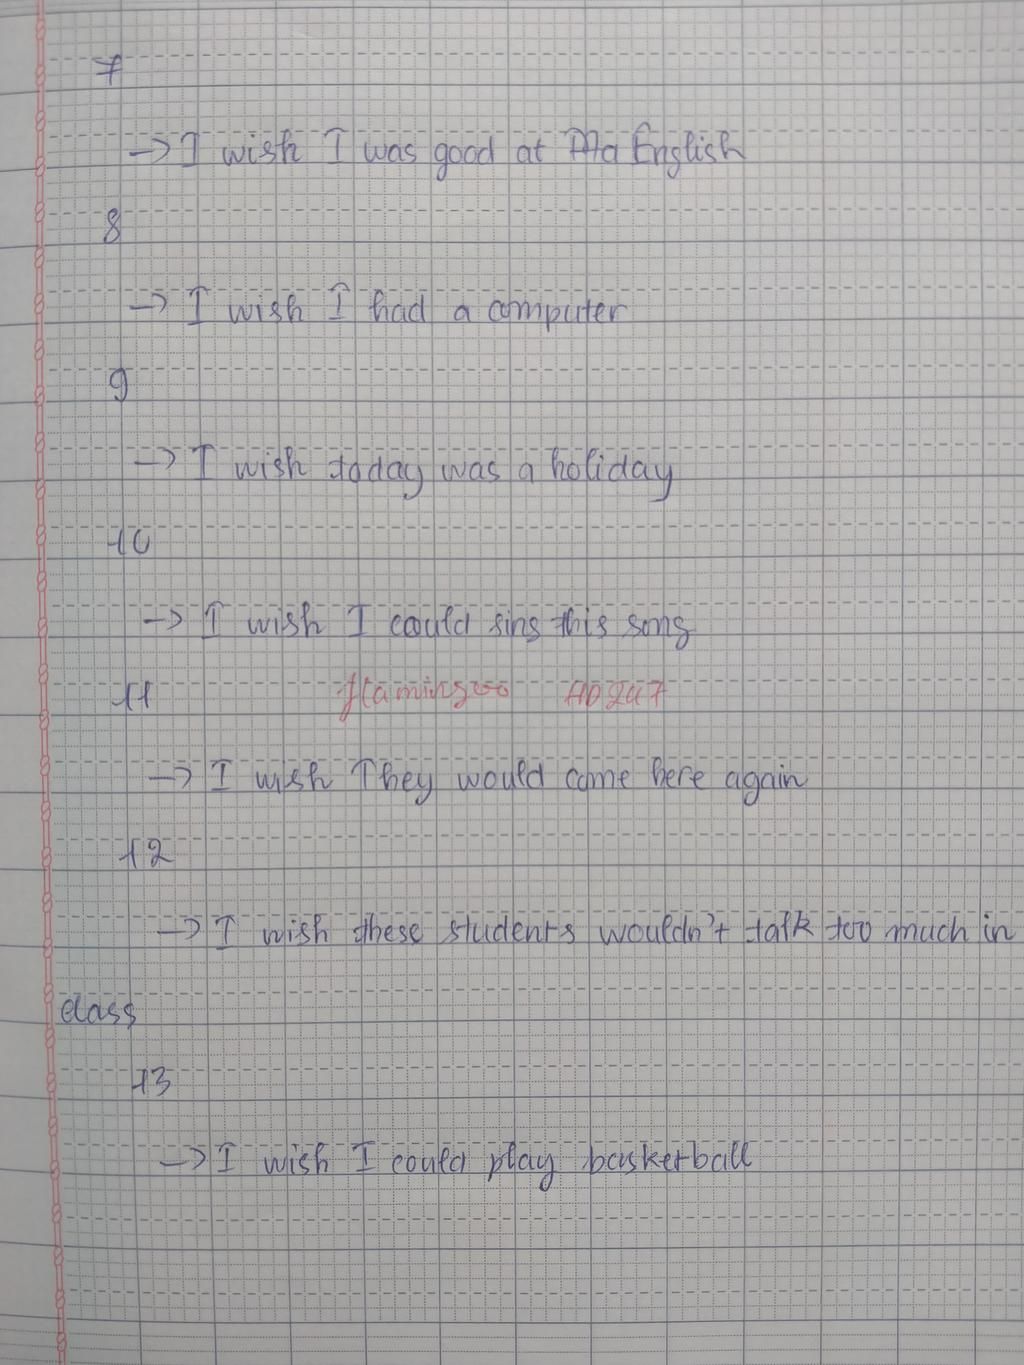 7
→ I wish I was good at English
8
→ I wish I had a computer
9
→ I wish today was a holiday
10
→ I wish I could sing this song
11 flamingoo HD247
→ I wish They would come here again
12
→ I wish these students wouldn't talk too much in
class
13
→ I wish I could play basketball